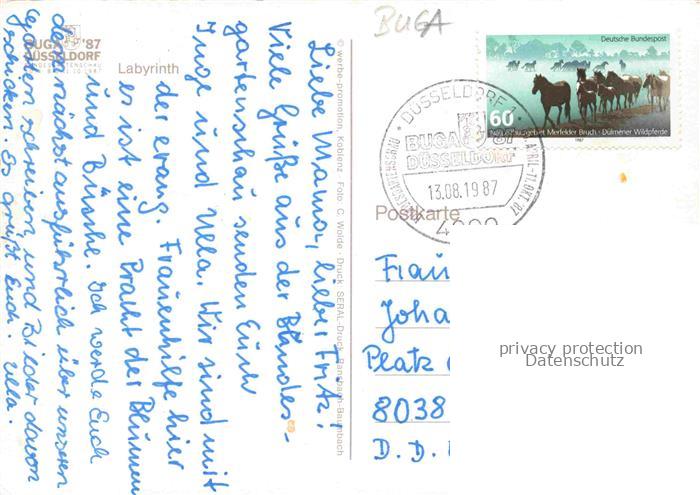 BUGA '87
DÜSSELDORF
BUNDESGARTENSCHAU
Labyrinth
Liebe Mama, lieber Fritz!
Viele Grüße aus der Bundes-
gartenschau senden Euch
Inge und Ulla. Wir sind mit
der evang. Frauenhilfe hier
es ist eine Pracht der Blumen
und Büsche. Ich werde Euch
demnächst ausführlich über unseren
Garten schreiben, und Bilder davon
schicken. Es grüßt Euch. Ulla.
© werbe-promotion, Koblenz Foto: C. Wolde · Druck SERAL-Druck Ransbach-Baumbach
BUGA
Deutsche Bundespost
60
Naturschutzgebiet Merfelder Bruch · Dülmener Wildpferde
1987
DÜSSELDORF 1
BUGA 87
DÜSSELDORF
BUNDESGARTENSCHAU
APRIL-11.OKT.'87
13.08.1987
4000
Postkarte
Frau
Joha
Platz
8038
D. D.
privacy protection
Datenschutz